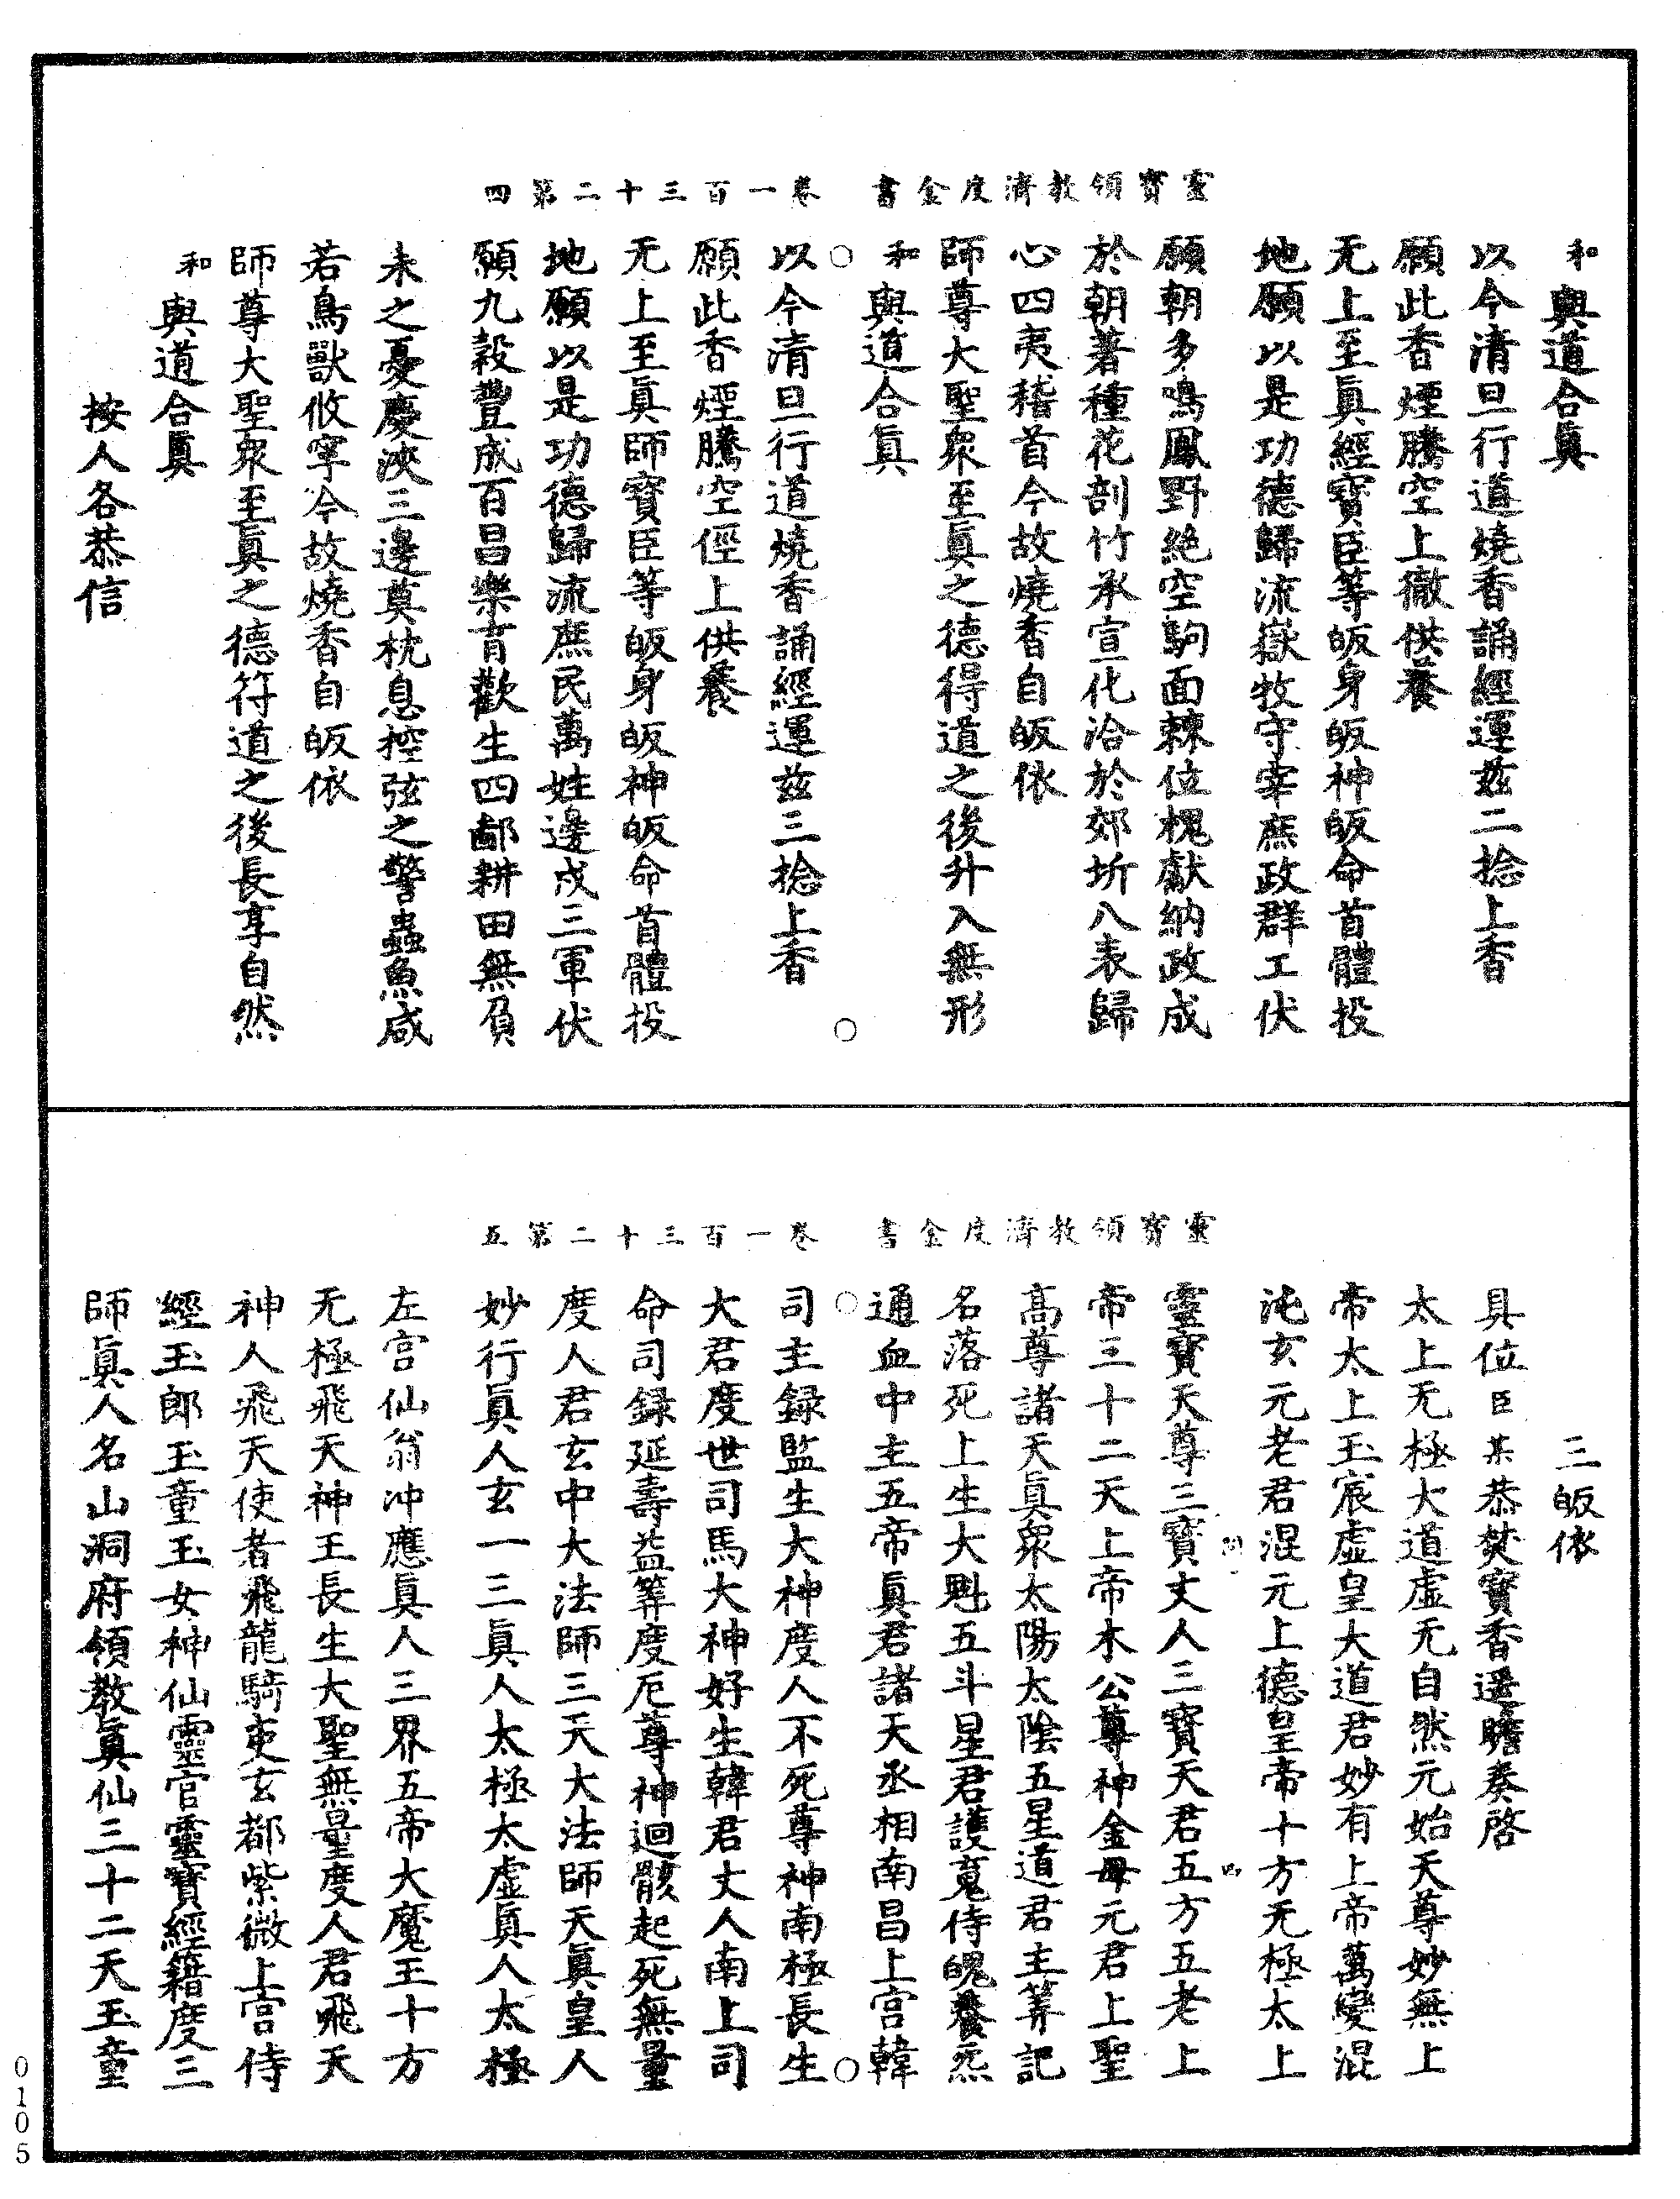 和與道合眞
以今清旦行道燒香誦經運兹二捻上香
願此香煙騰空上徹供養
无上至眞經寶臣等皈身皈神皈命首體投
地願以是功德歸流嶽牧守宰庶政群工伏
願朝多鳴鳳野絶空駒面棘位槐獻納政成
於朝著種花剖竹承宣化洽於郊圻八表歸
心四夷稽首今故燒香自皈依
師尊大聖衆至眞之德得道之後升入無形
和與道合眞
靈寶領教濟度金書 卷一百三十二第四
以今清旦行道燒香誦經運兹三捻上香
願此香煙騰空徑上供養
无上至眞師寶臣等皈身皈神皈命首體投
地願以是功德歸流庶民萬姓邊戍三軍伏
願九穀豐成百昌樂育歡生四鄙耕田無負
耒之憂慶浹三邊奠枕息控弦之警蟲魚咸
若鳥獸攸寧今故燒香自皈依
師尊大聖衆至眞之德符道之後長享自然
和與道合眞
按人各恭信
三皈依
具位臣某恭焚寶香遥瞻奏啓
太上无極大道虚无自然元始天尊妙無上
帝太上玉宸虚皇大道君妙有上帝萬變混
沌玄元老君混元上德皇帝十方无極太上
靈寶天尊三寶丈人三寶天君五方五老上
帝三十二天上帝木公尊神金母元君上聖
高尊諸天眞衆太陽太陰五星道君主筭記
名落死上生大魁五斗星君護䰟侍魄養炁
通血中主五帝眞君諸天丞相南昌上宫韓
靈寶領教濟度金書 卷一百三十二第五
司主録監生大神度人不死尊神南極長生
大君度世司馬大神好生韓君丈人南上司
命司録延壽益筭度厄尊神迴骸起死無量
度人君玄中大法師三天大法師天眞皇人
妙行眞人玄一三眞人太極太虚眞人太極
左宫仙翁冲應眞人三界五帝大魔王十方
无極飛天神王長生大聖無量度人君飛天
神人飛天使者飛龍騎吏玄都紫微上宫侍
經玉郎玉童玉女神仙靈官靈寶經籍度三
師眞人名山洞府領教眞仙三十二天玉童
0105